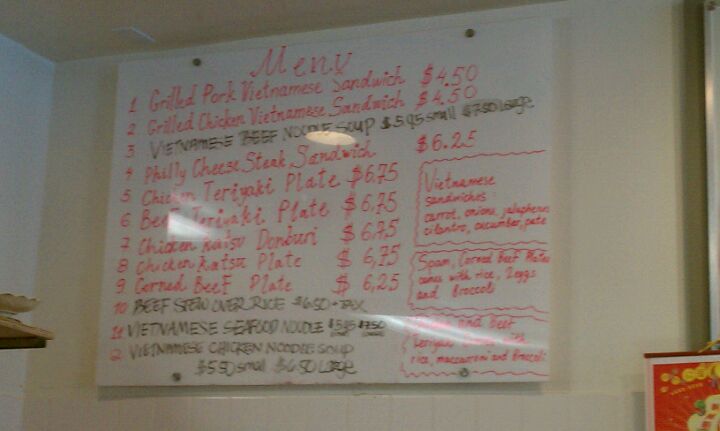 Menu
1 Grilled Pork Vietnamese Sandwich $4.50
2 Grilled Chicken Vietnamese Sandwich $4.50
3 VIETNAMESE BEEF NOODLE SOUP $5.95 small $7.50 Large
4 Philly Cheese Steak Sandwich $6.25
5 Chicken Teriyaki Plate $6,75
6 Beef Teriyaki Plate $6,75
7 Chicken Katsu Donburi $6,75
8 Chicken Katsu Plate $6,75
9 Corned Beef Plate $6,25
10 BEEF STEW OVER RICE $6.50 + TAX
11 VIETNAMESE SEAFOOD NOODLE $5.95 $7.50
12 VIETNAMESE CHICKEN NOODLE SOUP
$5.50 small $6.50 Large
Vietnamese
sandwiches
carrot, onions, jalapheno
cilantro, cucumber, pate
Spam, Corned Beef Plates
comes with rice, 2 eggs
and Broccoli
and Beef
Teriyaki with
rice, maccaroni and Broccoli